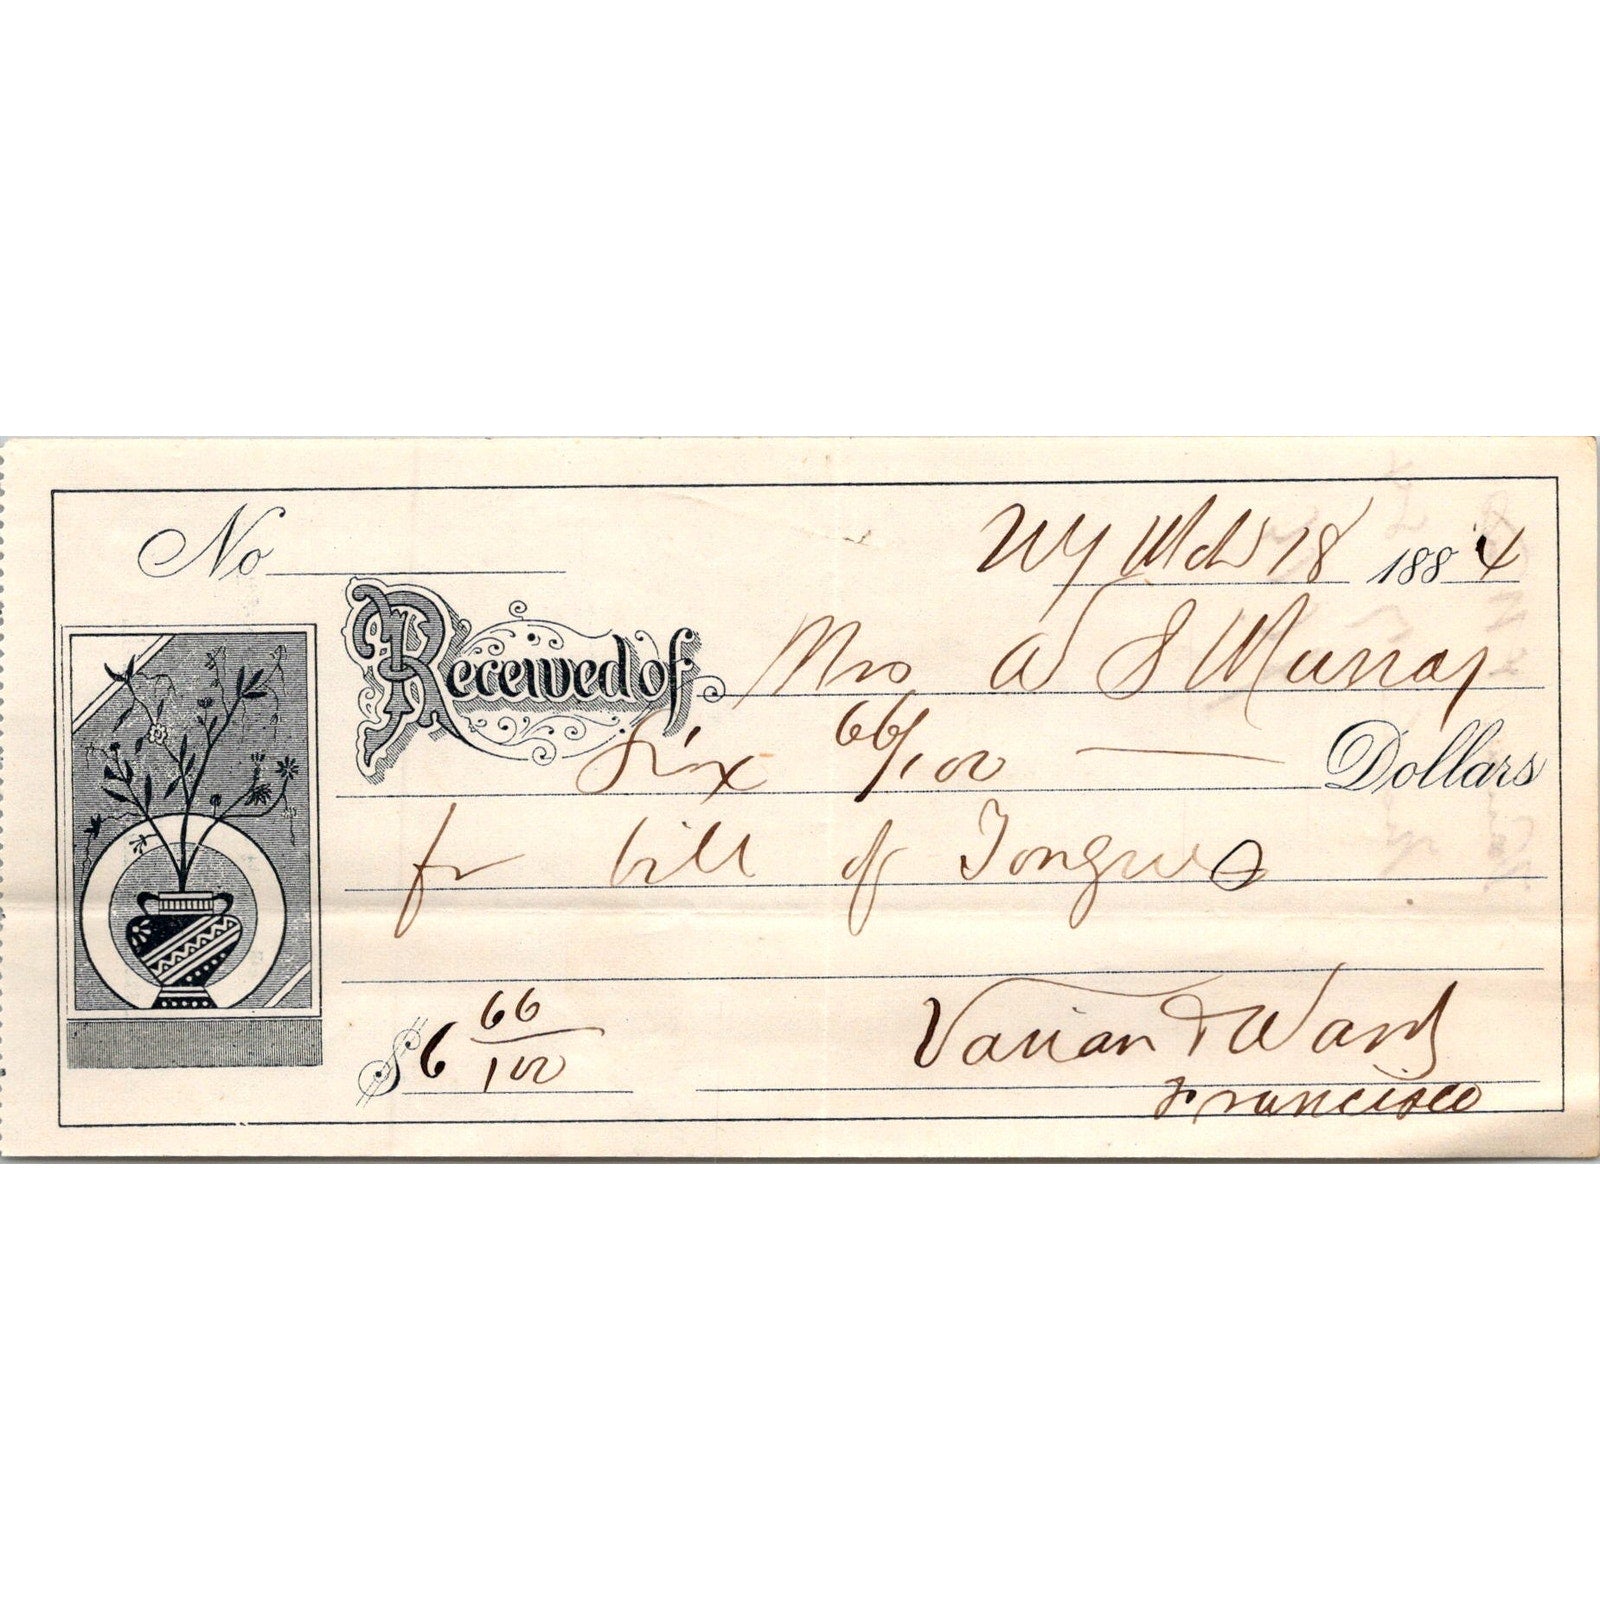 No
NY Mch 18 1884
Received of Mrs W S Murray
Six 66/100 Dollars
for bill of Tongues
$6 66/100
Varian & Ward
Francisco